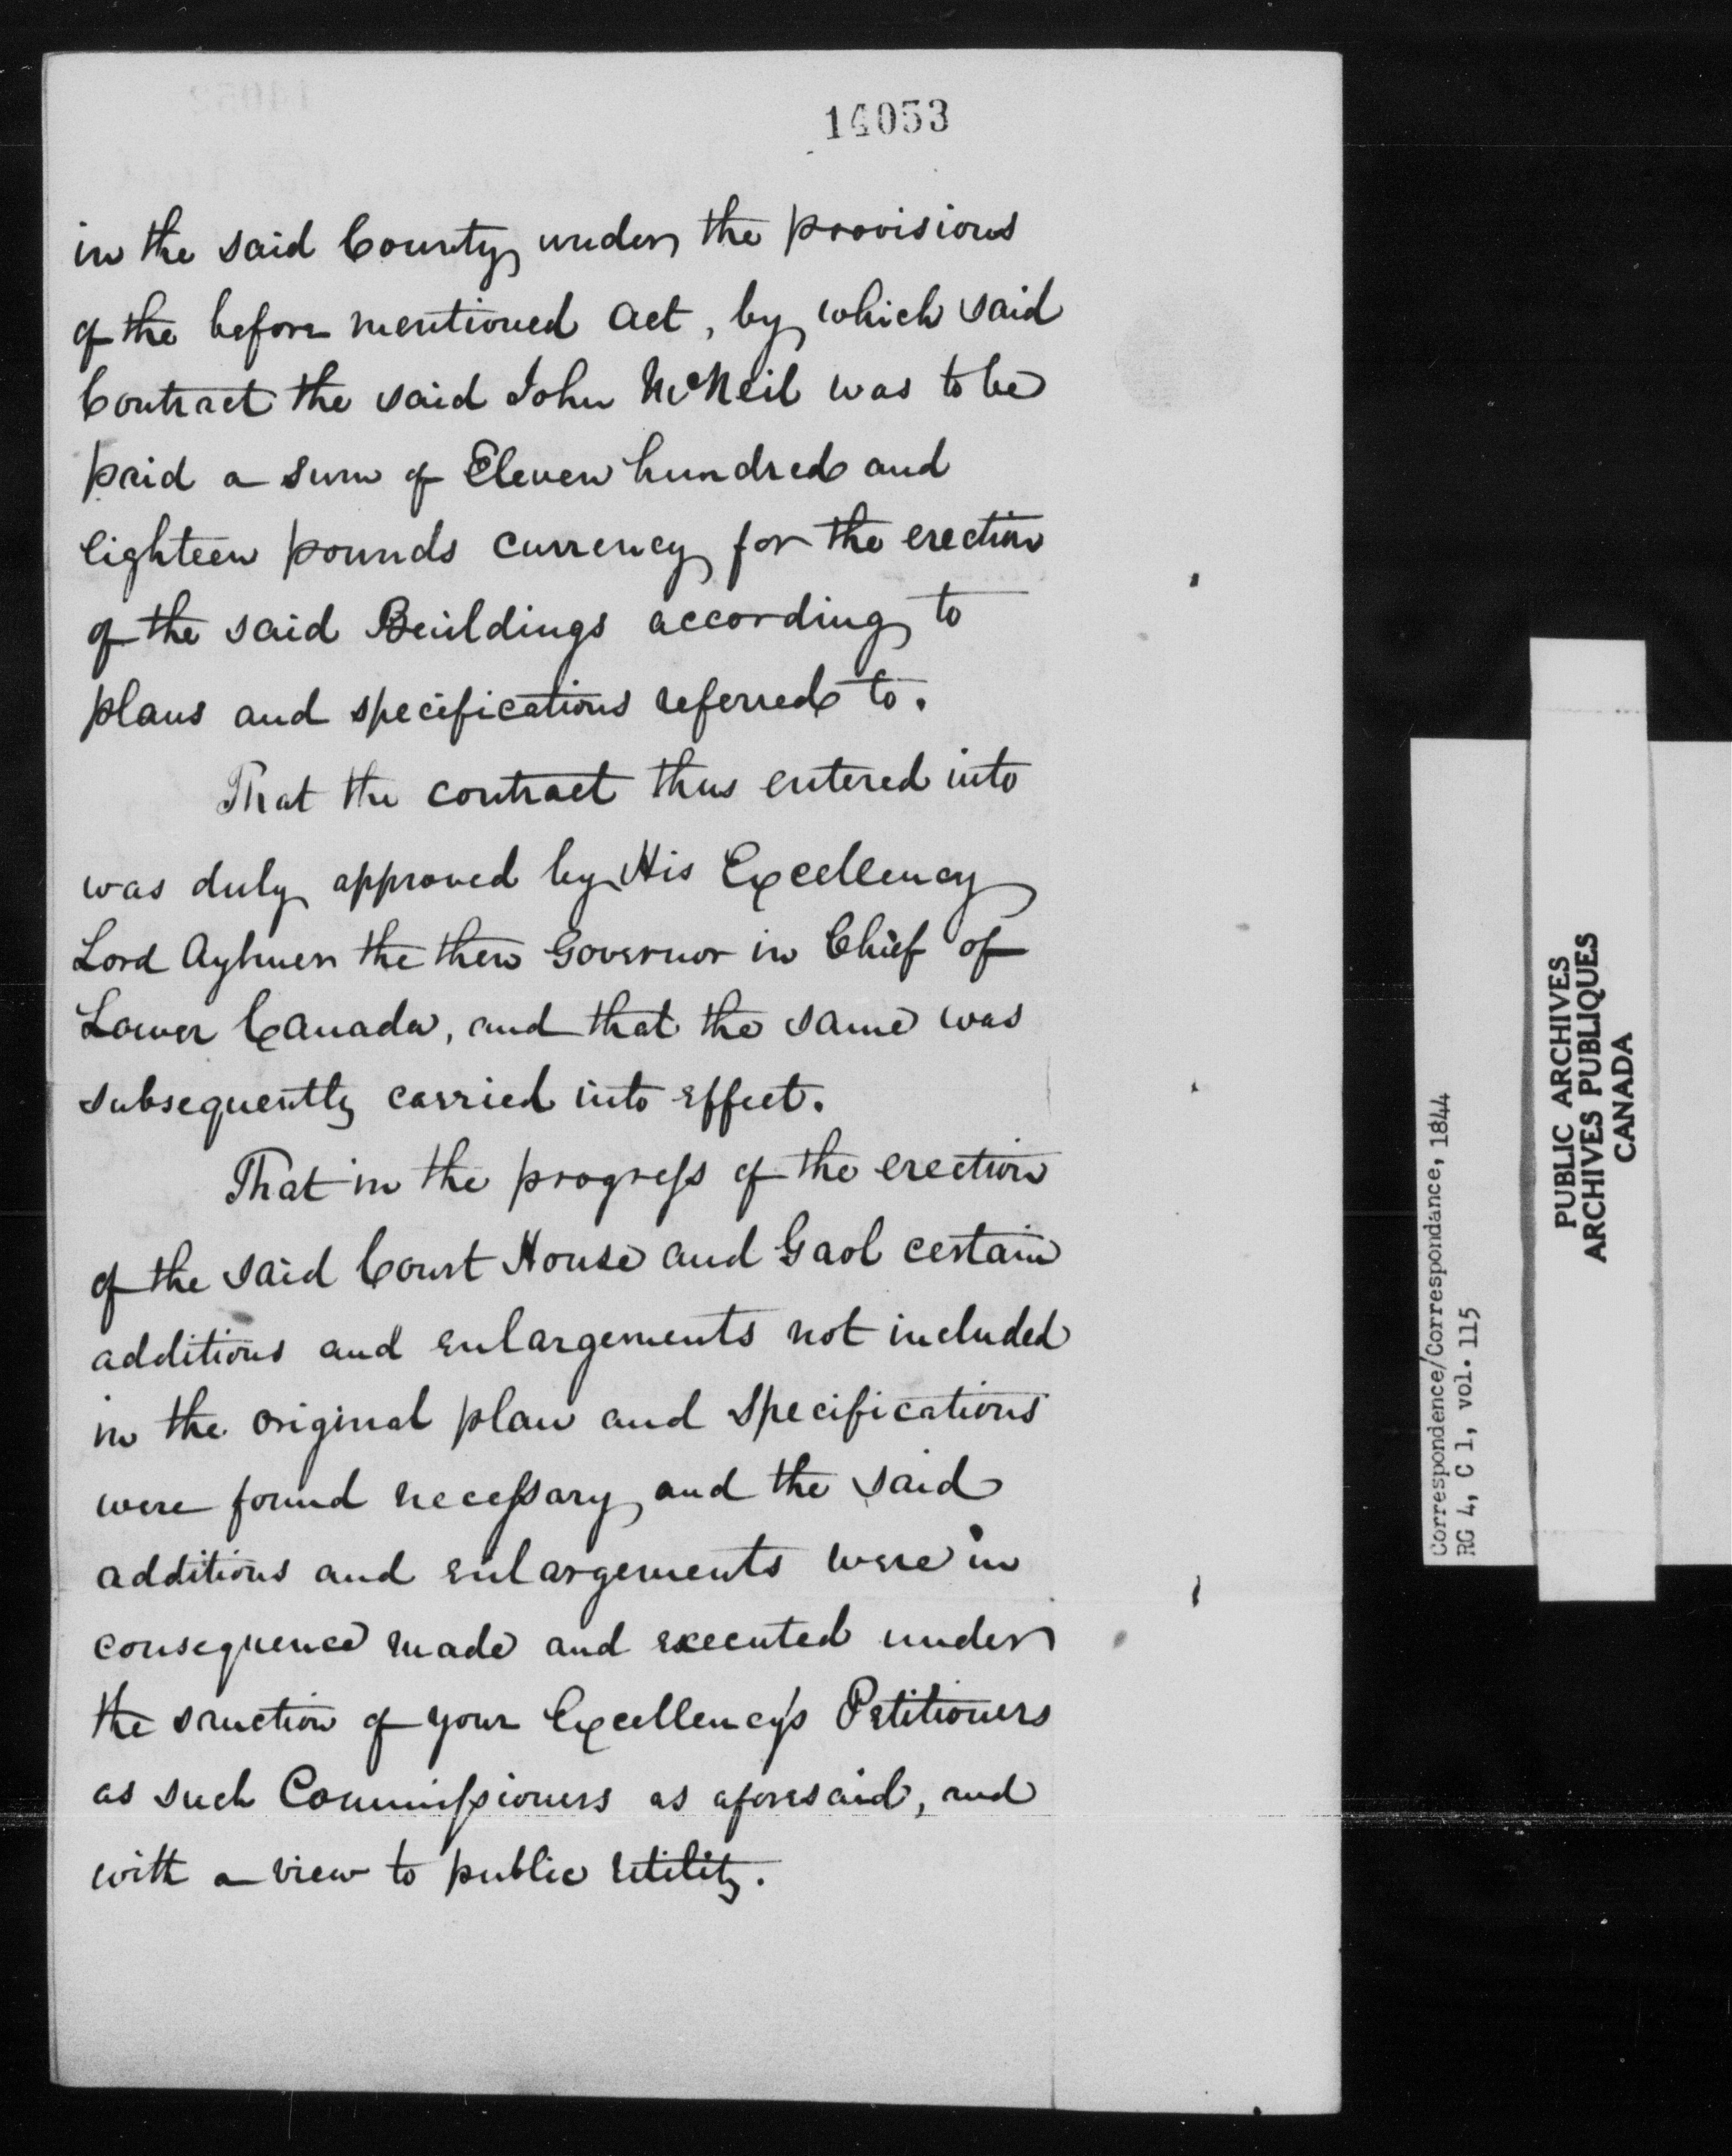 14053
in the said County under the provisions
of the before mentioned act, by which said
Contract the said John McNeil was to be
paid a sum of Eleven hundred and
eighteen pounds currency for the erection
of the said Buildings according to
plans and specifications referred to.
That the contract thus entered into
was duly approved by His Excellency
Lord Aylmer the then Governor in Chief of
Lower Canada, and that the same was
subsequently carried into effect.
That in the progress of the erection
of the said Court House and Gaol certain
additions and enlargements not included
in the original plan and specifications
were found necessary and the said
additions and enlargements were in
consequence made and executed under
the sanction of your Excellency's Petitioners
as such Commissioners as aforesaid, and
with a view to public utility.
Correspondence/Correspondance, 1844
RG 4, C 1, vol. 115
PUBLIC ARCHIVES
ARCHIVES PUBLIQUES
CANADA